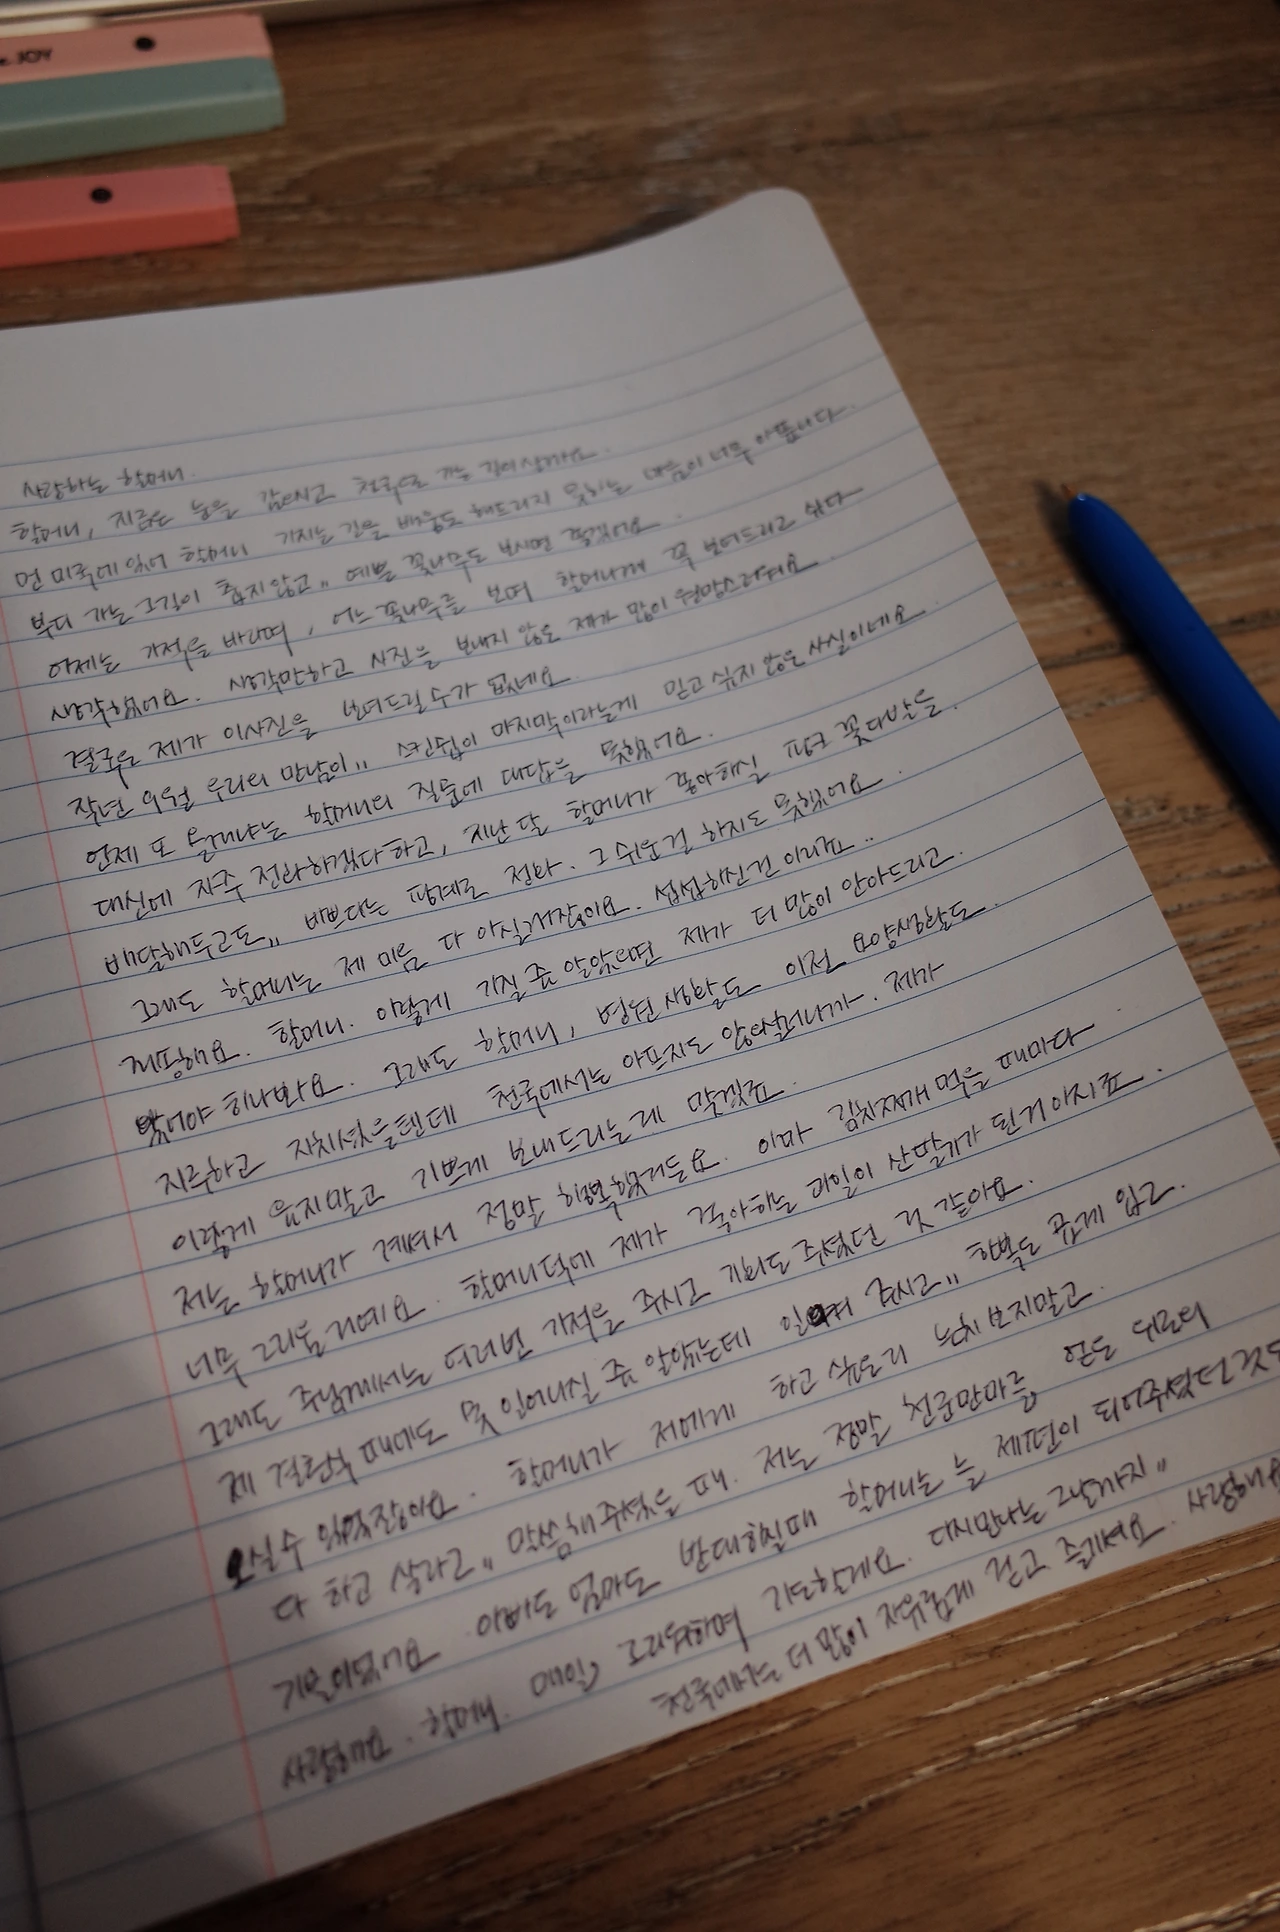 JOY
사랑하는 할머니.
할머니, 지금은 눈을 감으시고 천국으로 가는 길이실까요.
먼 미국에 있어 할머니 가시는 길을 배웅도 해드리지 못하는 마음이 너무 아픕니다.
부디 가는 그길이 춥지않고,, 예쁜 꽃나무도 보시면 좋겠어요.
어제는 기적을 바라며, 어느 꽃나무를 보며 할머니께 꼭 보여드리고 싶다
생각했었어요. 생각만하고 사진을 보내지 않은 제가 많이 원망스러워요.
결국은 제가 이사진을 보여드릴수가 없네요.
작년 우리의 만남이,, 스킨쉽이 마지막이라는게 믿고 싶지 않은 사실이네요.
언제 또 올거냐는 할머니의 질문에 대답을 못했어요.
대신에 자주 전화하겠다하고, 지난 달 할머니가 좋아하실 핑크 꽃다발을
배달해두고도,, 바쁘다는 핑계로 전화. 그 쉬운걸 하지도 못했어요.
그래도 할머니는 제 마음 다 아실거잖아요. 섭섭하신건 아니죠..
죄송해요. 할머니. 이렇게 가실 줄 알았으면 제가 더 많이 안아드리고
왔어야 하나봐요. 그래도 할머니, 병원 생활도 이전 요양생활도
지루하고 지치셨을텐데 천국에서는 아프지도 않으실테니까. 제가
이렇게 울지말고 기쁘게 보내드리는게 맞겠죠.
저는 할머니가 계셔서 정말 행복했거든요. 아마 김치찌개 먹을 때마다
너무 그리울거에요. 할머니덕에 제가 좋아하는 과일이 산딸기가 된거 아시죠.
그래도 주님께서는 여러번 기적을 주시고 기회도 주셨던 것 같아요.
제 결혼식 때에도 못 일어나실 줄 알았는데 일어나 주시고,, 한복도 곱게 입고
오실수 있었잖아요. 할머니가 저에게 하고 싶은거 눈치 보지말고
다 하고 살라고,, 말씀해주셨을 때. 저는 정말 천군만마를 얻은
기분이었거든요. 아빠도 엄마도 반대하실때 할머니는 늘 제편이 되어주셨던것도
사랑해요. 할머니. 매일 그리워하며 기도할게요. 다시만나는 그날까지,,
천국에서는 더 많이 자유롭게 걷고 즐기세요. 사랑해요